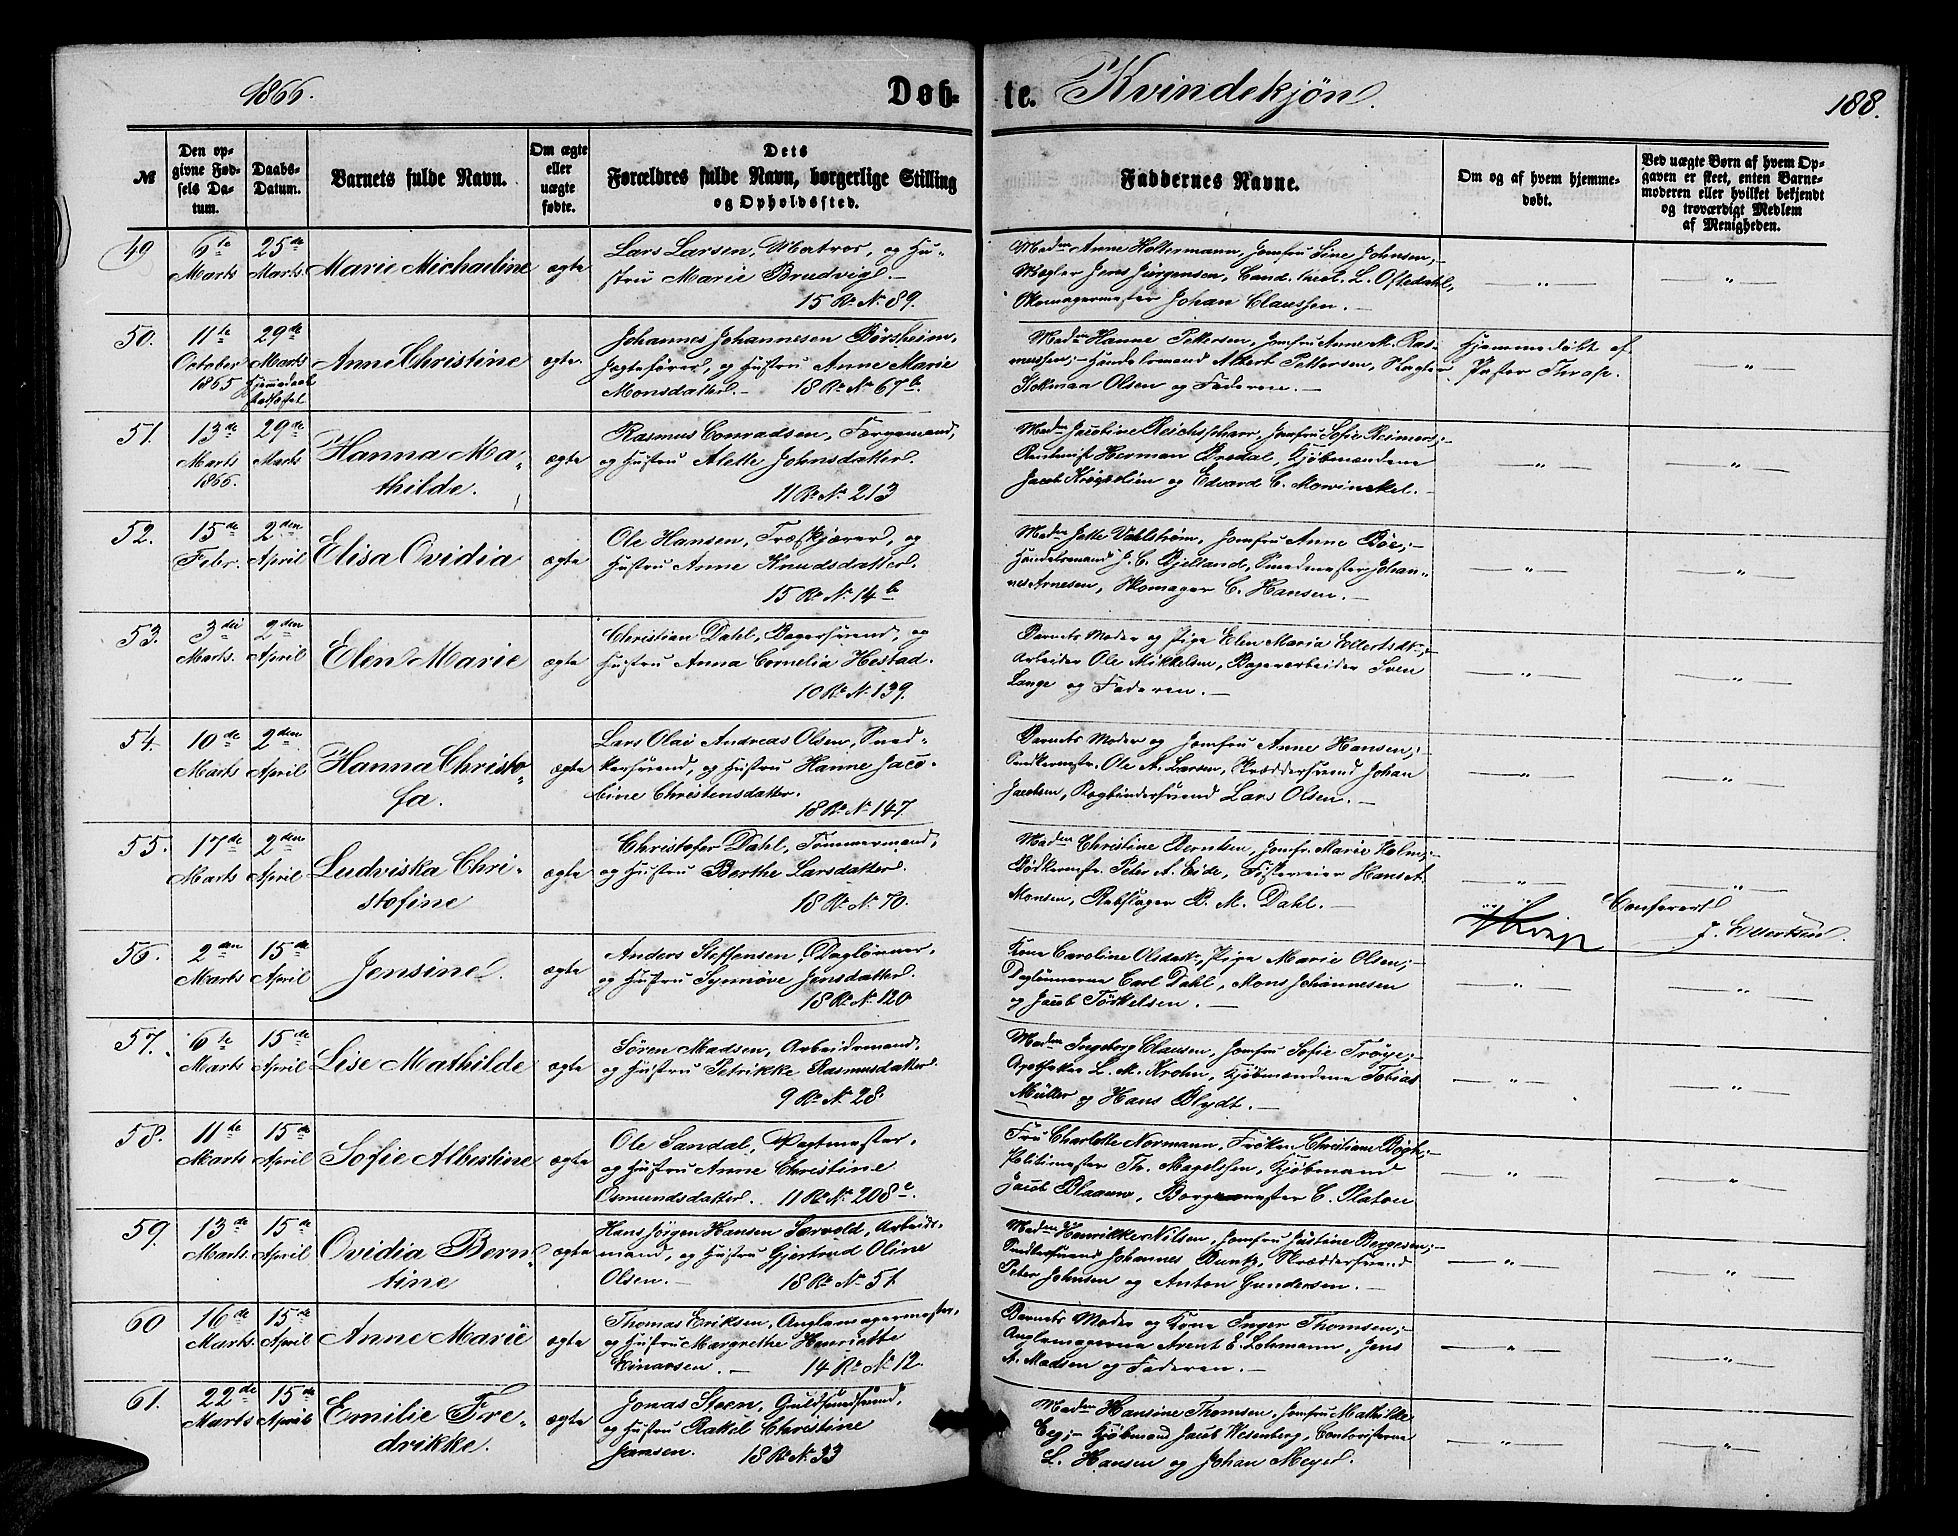 1866.
Døb-
te.
Kvindekjøn.
188.
№
Den op-
givne Fød-
sels Da-
tum.
Daabs-
Datum.
Barnets fulde Navn.
Om ægte
eller
uægte
fødte.
Dets
Forældres fulde Navn, borgerlige Stilling
og Opholdssted.
Faddernes Navne.
Om og af hvem hjemme-
døbt.
Ved uægte Børn af hvem Op-
gaven er skeet, enten Barne-
moderen eller hvilket bekjendt
og troværdigt Medlem
af Menigheden.
49
6te
Marts
25de
Marts.
Marie Michaeline
ægte
Lars Larsen, Matros, og Hu-
stru Marie Brudvig.
15 R. N. 89.
Madm Anne Holtermann, Jomfru Sine Johnsen;
Mægler Jens Jürgensen, Cand. theol. L. Oftedahl,
Skomagermester Johan Claussen.
50.
11te
October
1865
29de
Marts
Anne Christine
ægte.
Johannes Johannesen Børsheim,
Jægtefører, og Hustru Anne Marie
Monsdatter. 18 R. N. 67b.
Madm Hanne Pettersen, Jomfru Anne M. Ras-
mussen; Handelsmand Albert Pettersen, Slagter
Olsen og Faderen.
Hjemmedøbt af
Pastor Thrap.
51.
13de
Marts
1866.
29de
Marts
Hanna Ma-
thilde.
ægte
Rasmus Conradsen, Færgemand,
og Hustru Alette Johnsdatter
11 R. N. 213
Madm Jacobine Jomfru Sofie Reimers;
Herman Bredal, Kjøbmændene
Jacob og Edvard C. Mowinckel.
52.
15de
Febr.
2den
April
Elisa Ovidia
ægte
Ole Hansen, Træskjærer, og
Hustru Anne Knudsdatter.
15 R. N. 14b
Madm Jette Vahlstrøm, Jomfru Anne Bøe;
Handelsmand J. C. Kjelland, Smedmester Johan-
nes Arnesen, Skomager C. Hansen.
53.
3die
Marts.
2den
April
Elen Marie
ægte
Christian Dahl, Bagersvend, og
Hustru Anna Cornelia Hestad.
10 R. N. 139.
Barnets Moder og Pige Elen Marie Ellertsdtr;
Arbeider Ole Mikkelsen, Bagerarbeider Sven
Lange og Faderen.
54.
10de
Marts
2den
April
Hanna Christo-
fa.
ægte
Lars Olai Andreas Olsen, Sned-
kersvend, og Hustru Hanne Jaco-
bine Christensdatter.
18 R. N. 147
Barnets Moder og Jomfru Anne Hansen;
Snedkermstr. Ole A. Larsen, Skræddersvend Johan
Jacobsen, Bogbindersvend Lars Olsen.
55.
17de
Marts
2den
April
Ludviska Chri-
stofine
ægte
Christofer Dahl, Tømmermand,
og Hustru Berthe Larsdatter.
18 R. N. 70.
Madm Christine Berntsen, Jomfr. Marie Holm;
Bødkermstr. Peter A. Eide, Fisteveier Hans A.
Monsen, Rebslager B. M. Dahl.
Confereret
J. Ellertsen.
56.
2den
Marts
15de
April
Jensine
ægte
Anders Steffensen, Daglønner,
og Hustru Synnøve Jensdatter.
18 R. N. 120
Kone Caroline Olsdatt., Pige Marie Olsen;
Daglønnerne Carl Dahl, Mons Johannesen
og Jacob Torkelsen.
57.
6te
Marts
15de
April
Lise Mathilde
ægte
Søren Madsen, Arbeidsmand,
og Hustru Petrikke Rasmusdatter.
9 R. N. 28.
Madm Ingeborg Clausen, Jomfru Sofie Trøye;
Apotheker L. M. Krohn, Kjøbmændene Tobias
Müller og Hans Blydt.
58.
11te
Marts
15de
April
Sofie Albertine
ægte
Ole Sandal, Vagtmester,
og Hustru Anne Christine
Osmundsdatter. 11 R. N. 208c.
Fru Charlotte Normann, Frøken Christiane Bøgh;
Politimester Th. Magelssen, Kjøbmand
Jacob Blaauw, Borgemester C. Platou
59.
13de
Marts.
15de
April
Ovidia Bern-
tine
ægte
Hans Jörgen Hansen Sørvold, Arbeids-
mand, og Hustru Gjertrud Oline
Olsen. 18 R. N. 51
Madm Henrikke Nilsen, Jomfru Justine Bergesen;
Johannes Buntz, Skræddersvend
Peter Johnsen og Anton Gundersen.
60
16de
Marts.
15de
April
Anne Marie
ægte
Thomas Eriksen, Anglemagermester,
og Hustru Margrethe Henriette
Einarsen. 14 R. N. 12.
Barnets Moder og Kone Inger Thomsen;
Anglemagerne Arent E. Lohmann, Jens
A. Madsen og Faderen.
61.
22de
Marts
15de
April
Emilie Fre-
drikke.
ægte
Jonas Steen, Guldsmedsvend,
og Hustru Rakel Christine
Jansen. 18 R. N. 33
Madm Hansine Thomsen, Jomfru Mathilde
Eeg; Kjøbmand Jacob Wesenberg, Contoristerne
L. Hansen og Johan Meyer.